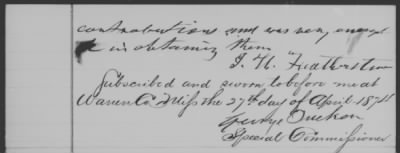 contrabutions and was very
in obtaining them
J. H. Featherston
Subscribed and sworn to before me at
Warren Co Miss the 27th day of April 187
George Tucker
Special Commissioner